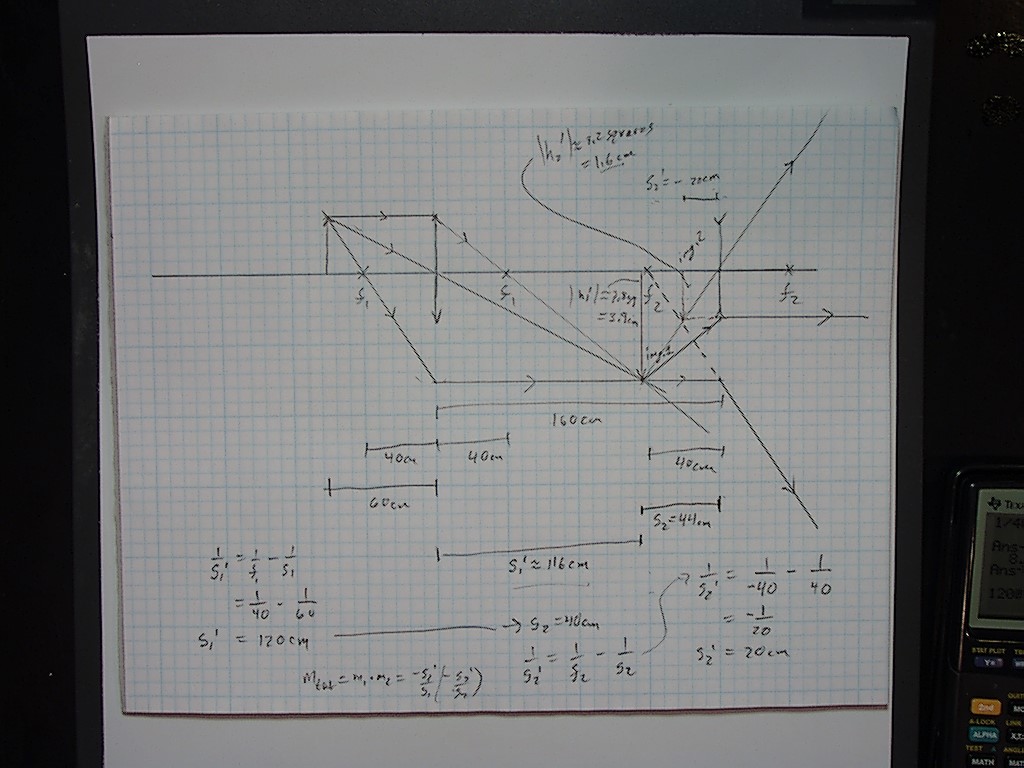 |h2'| ≈ 3.2 squares
= 1.6 cm
S2' = -20cm
img.2
f1
f1
|h1'| ≈ 7.8 sq
= 3.9cm
f2
f2
img.1
160cm
40cm
40cm
40cm
60cm
S2 = 44cm
S1' ≈ 116cm
1/S1' = 1/f1 - 1/S1
= 1/40 - 1/60
S1' = 120cm
→ S2 = 40cm
1/S2' = 1/f2 - 1/S2
1/S2' = 1/-40 - 1/40
= -1/20
S2' = 20cm
Mtot = m1 · m2 =
TEXAS
1/4
Ans
8.
Ans
1200
STAT PLOT
Y=
2nd
A-LOCK
ALPHA
LINK
X,T,
TEST
A
MATH